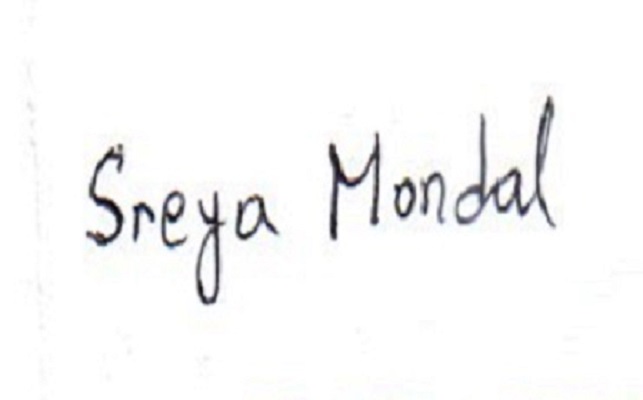 Sreya Mondal